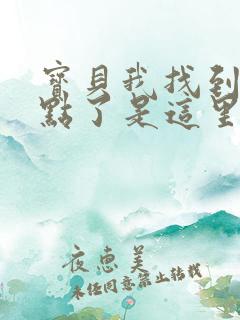 寶貝我找到
點了是這里
夜惠美
未经同意禁止转载